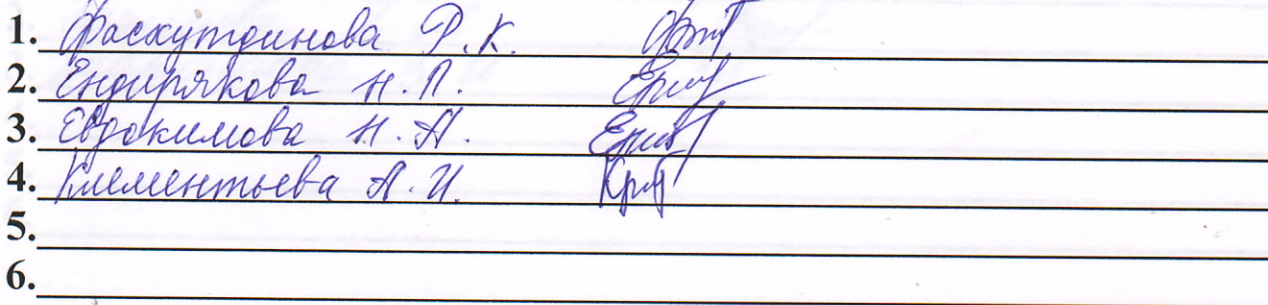 1. Фасхутдинова Р.К.
2. Ендирякова Н.П.
3. Евдокимова Н.А.
4. Клементьева А.И.
5.
6.